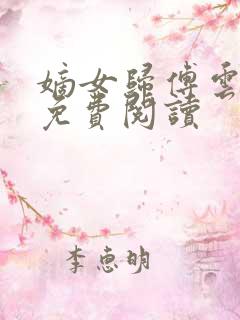 嫡女歸傅雲
免費閱讀
李惠明